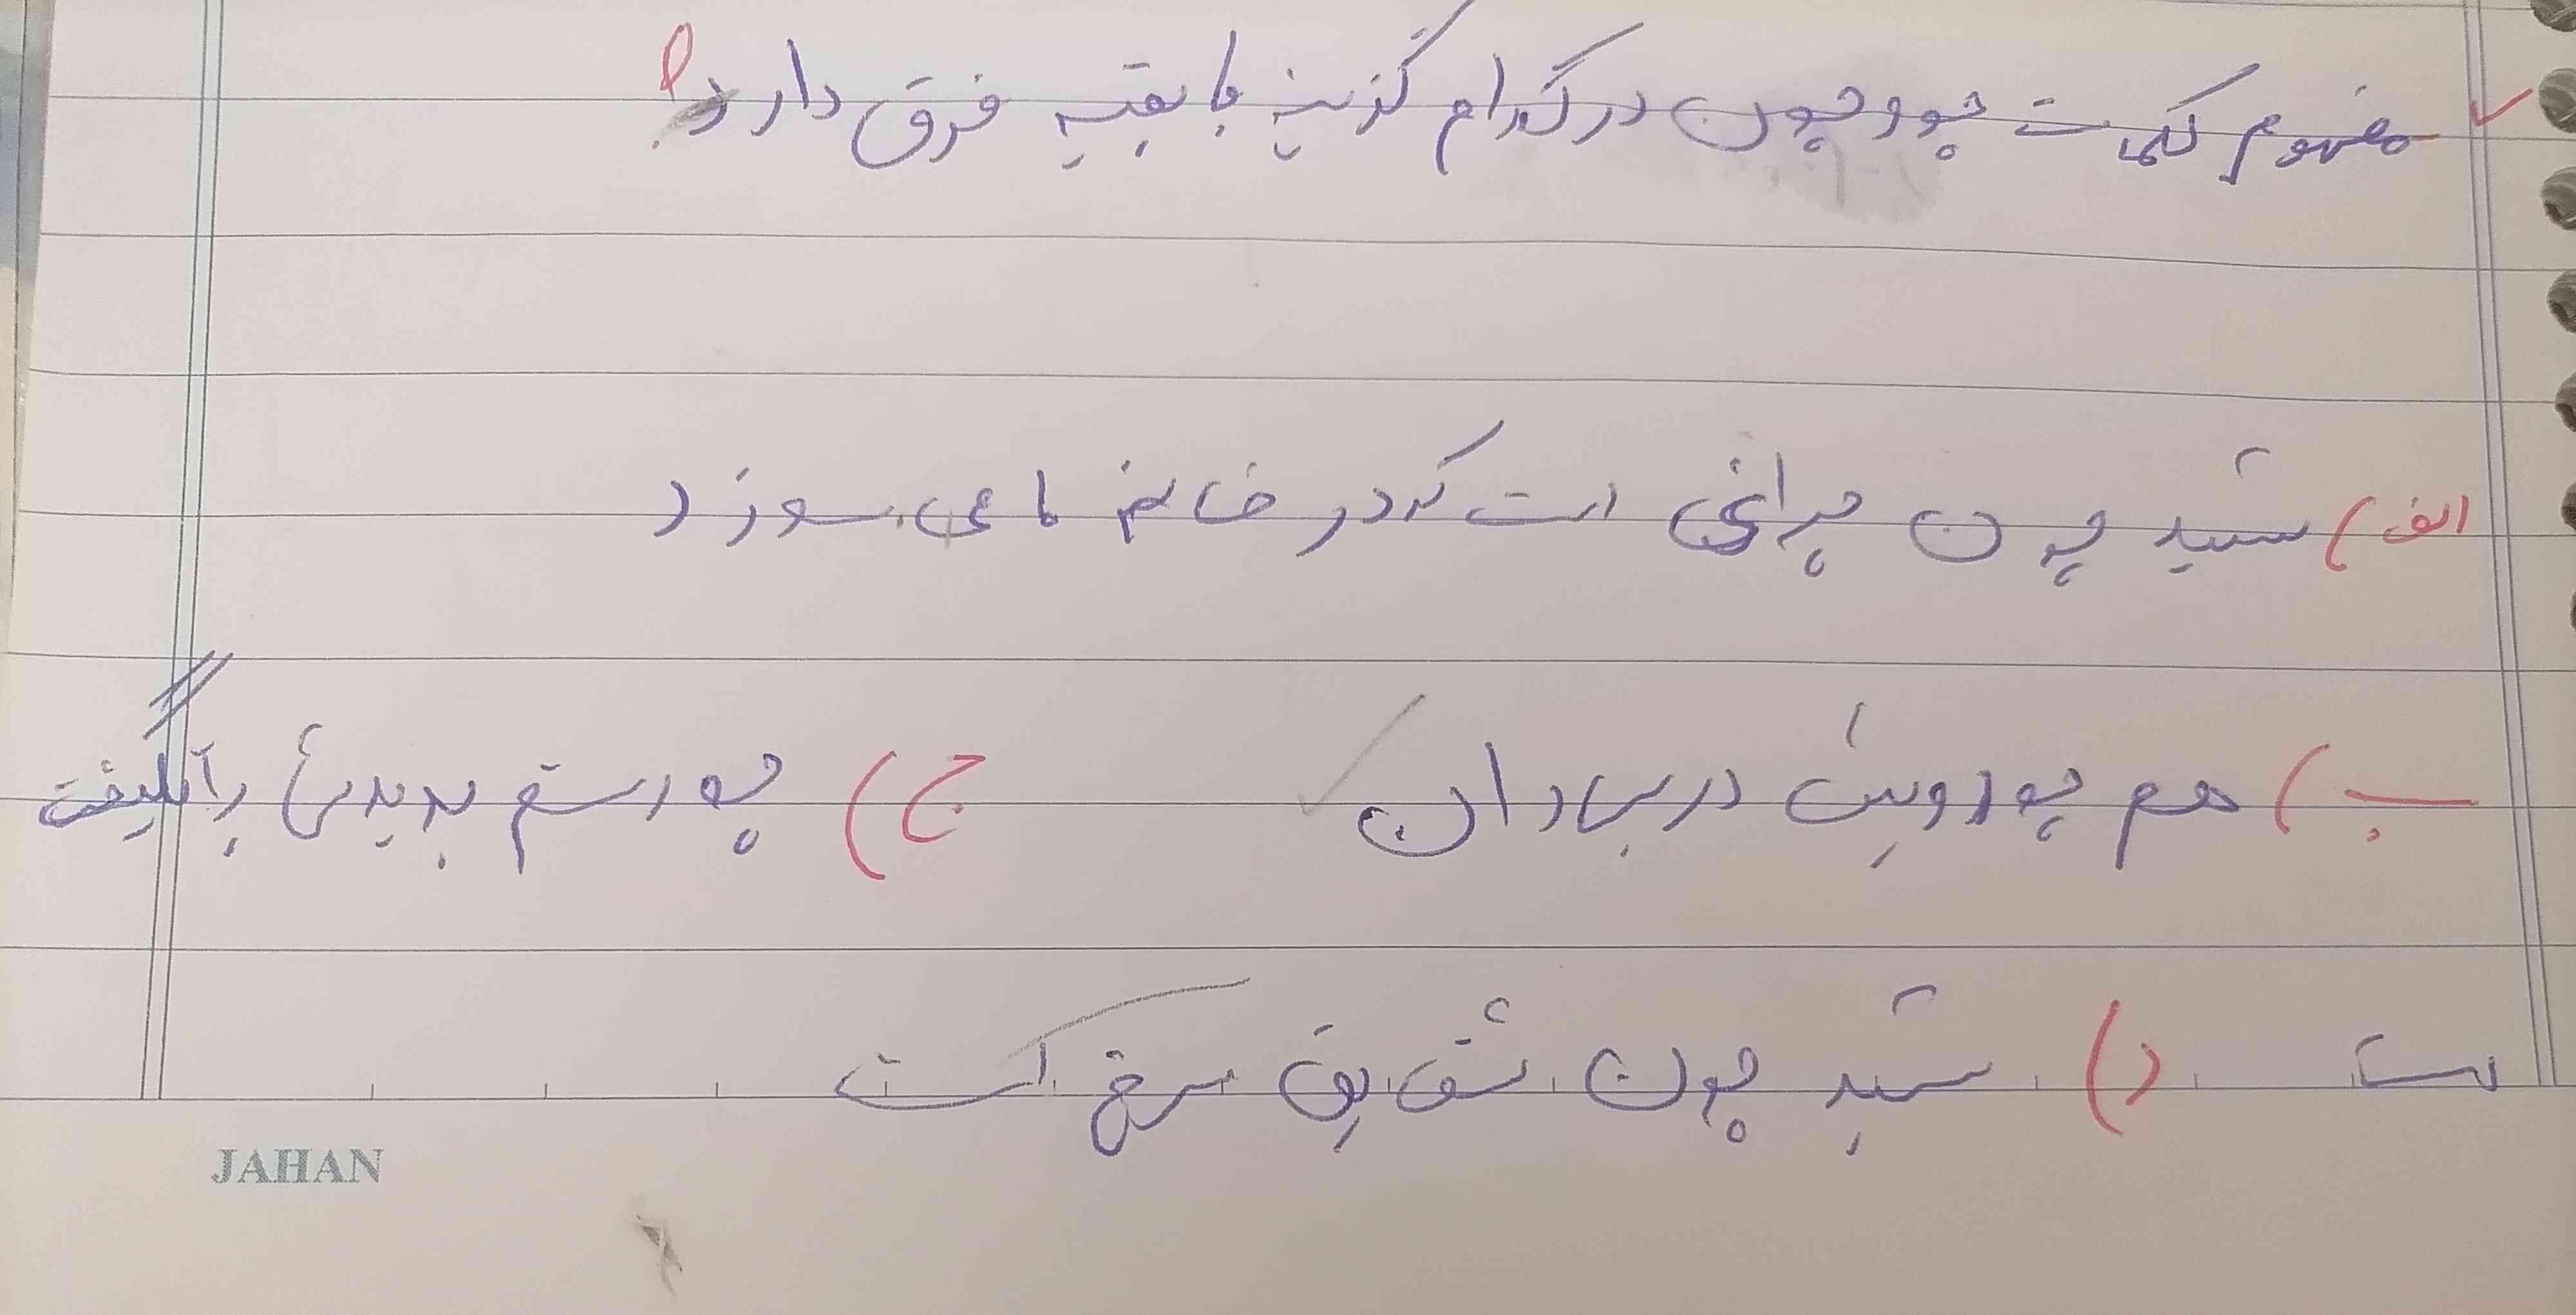 مفهوم کلمات چو و چون در کدام گزینه با بقیه فرق دارد؟
الف) شهید چون چراغی است که در خانه ما می سوزد
ب) هم چو رویش در بهاران ج) چو رستم بدیدش برانگیخت
است د) شهید چون شقایق سرخ است
JAHAN